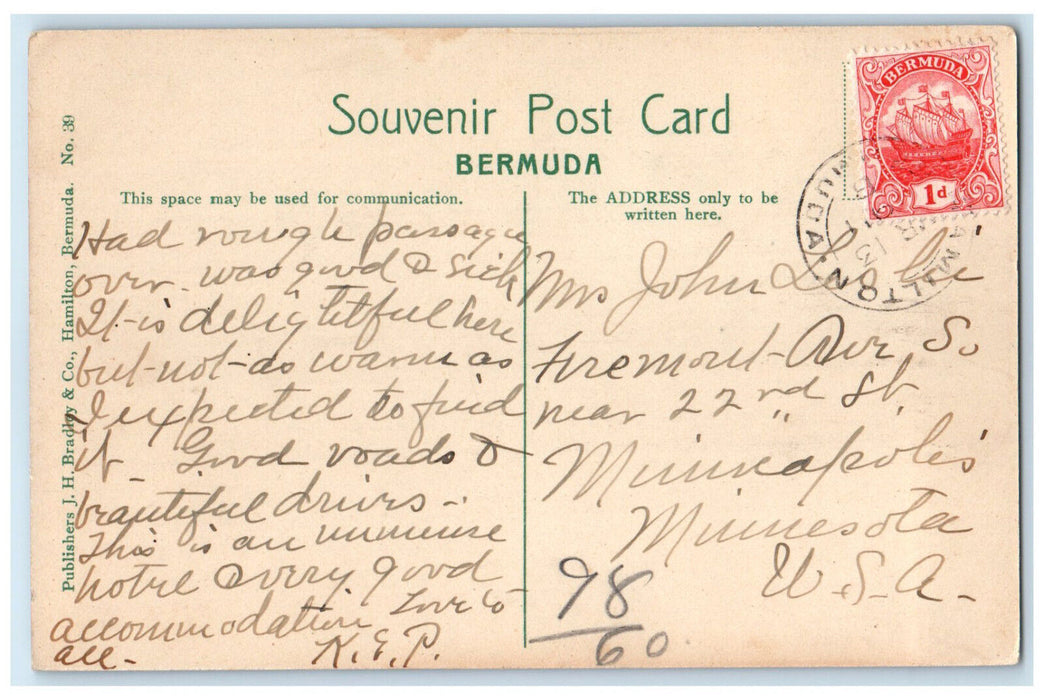 Souvenir Post Card
BERMUDA
This space may be used for communication.
The ADDRESS only to be
written here.
Publishers J. H. Bradley & Co., Hamilton, Bermuda. No. 39
BERMUDA
1d
HAMILTON
BERMUDA
Had rough passage
over. was good & sick
It is delightful here
but not as warm as
I expected to find
it. Good roads &
beautiful drives.
This is an immense
hotel & very good
accommodation Love to
all-
K.E.P.
Mrs John Leslie
Firemont Ave So
near 22nd St.
Minneapolis
Minnesota
U.S.A.
98
60